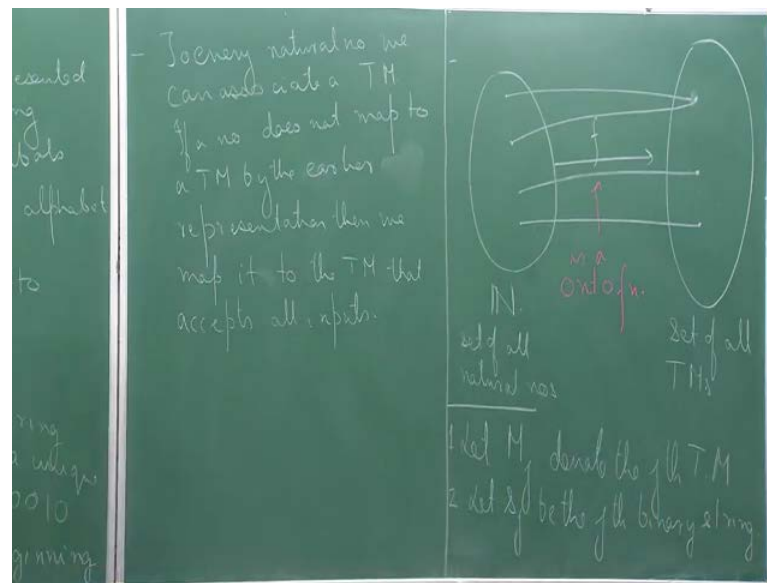 esented
ng
bols
alphabet
to
ring
a unique
0010
ginning
- To every natural no we
can associate a TM
If a no does not map to
a TM by the earlier
representation then we
map it to the TM that
accepts all inputs.
-
f
is a
onto fn.
IN.
set of all
natural nos
Set of all
TMs
1 Let Mj denote the jth T.M
2 Let Sj be the jth binary string